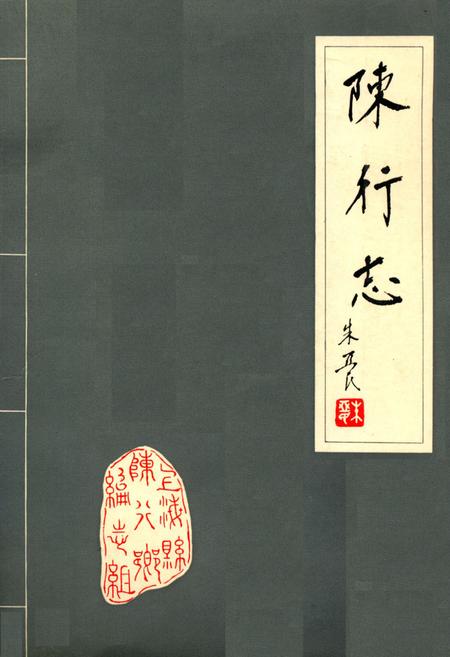 陳行志
朱亞民
上海縣
陳行鄉
編志組